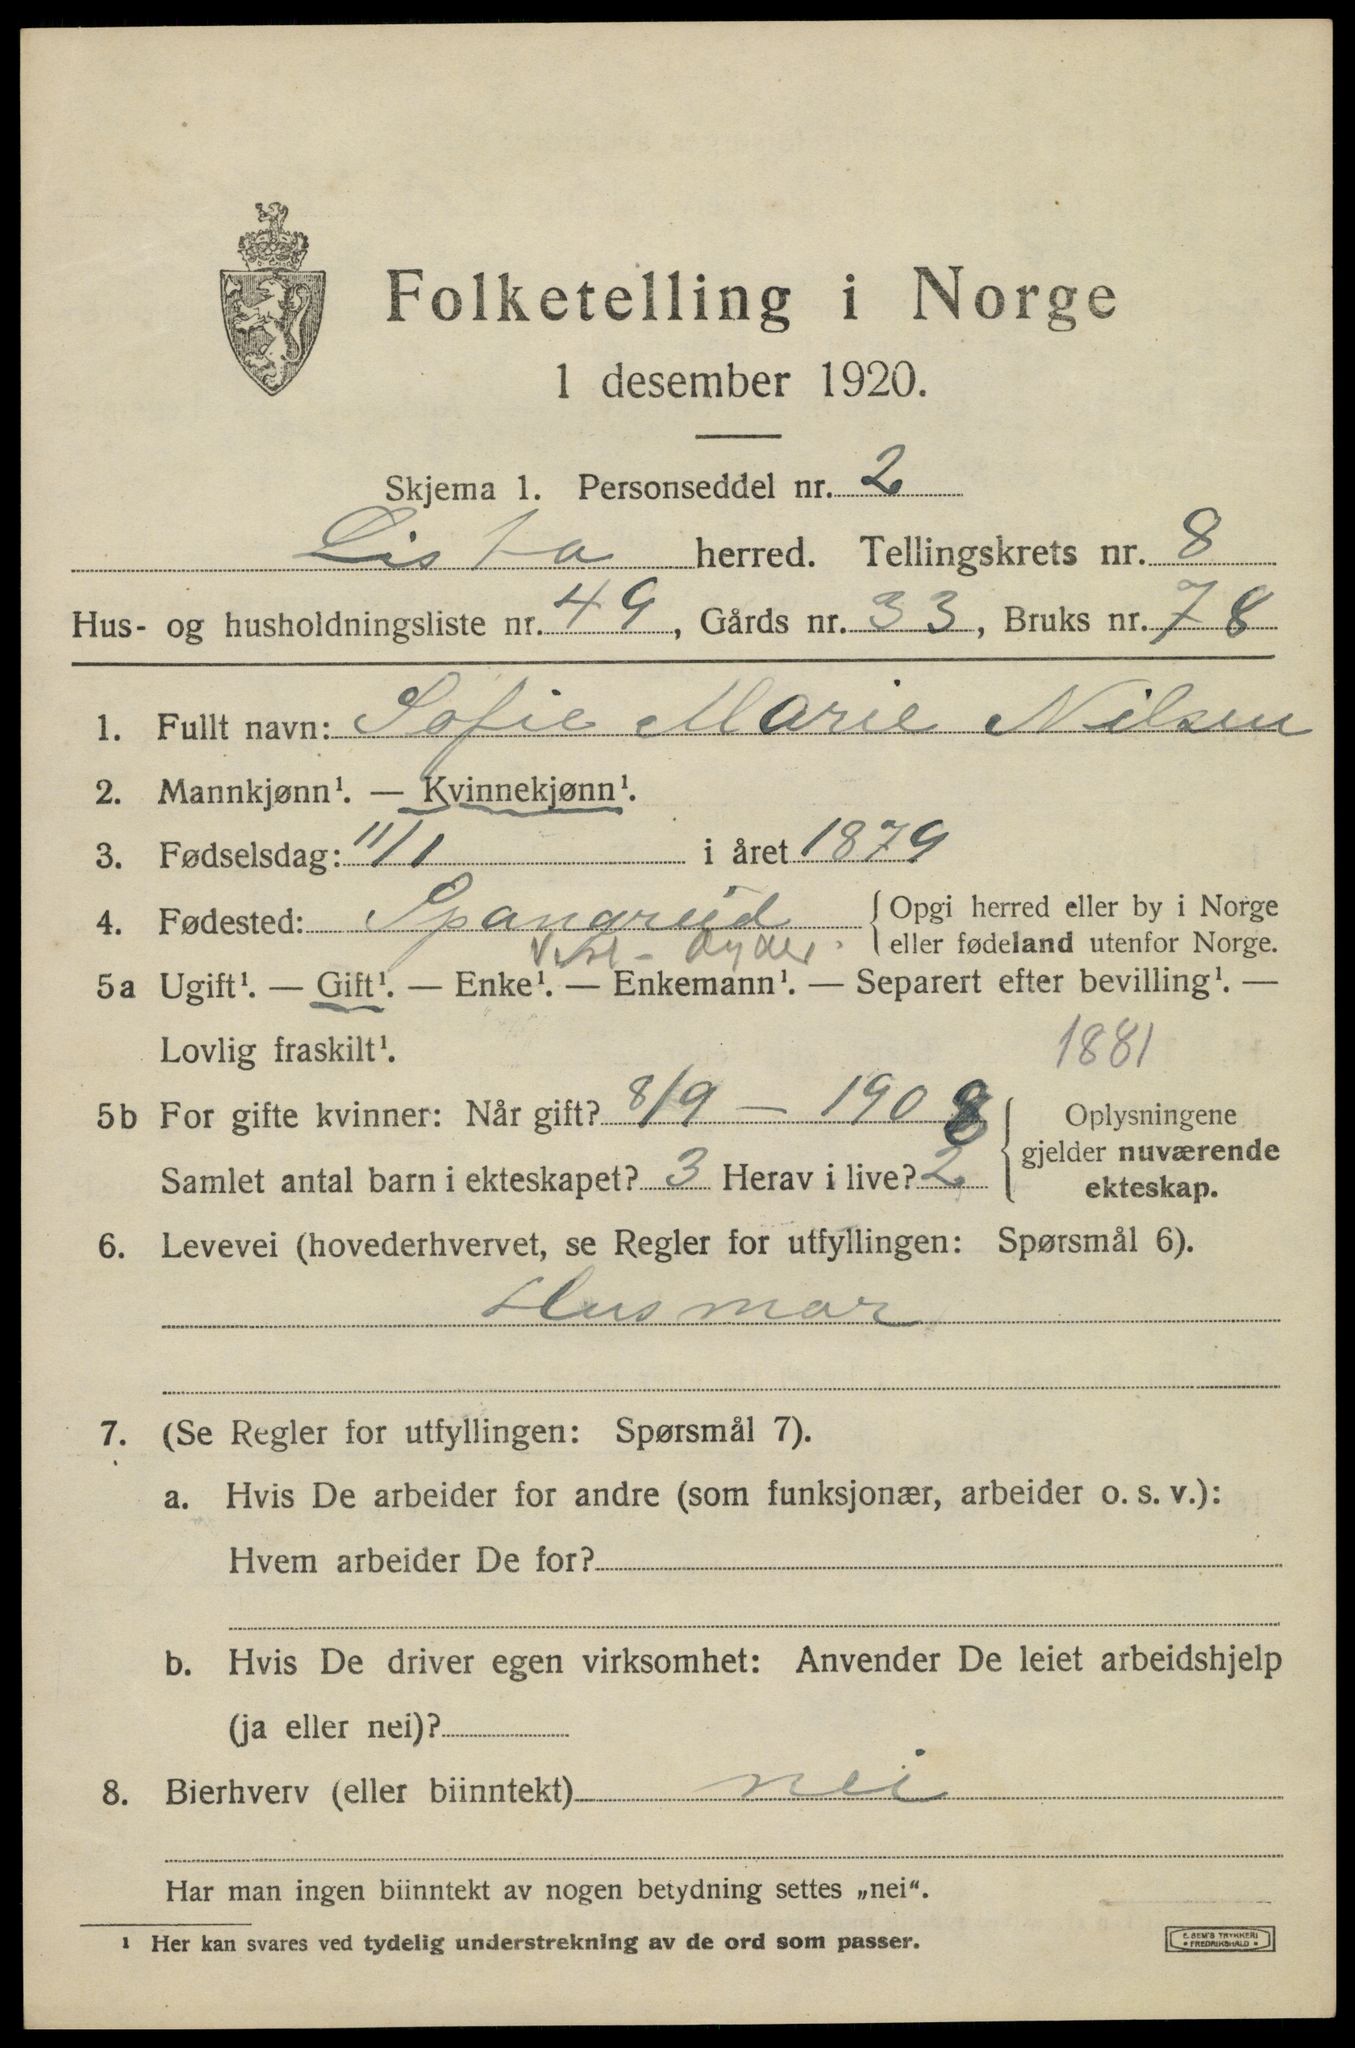 Folketelling i Norge
1 desember 1920.
Skjema 1. Personseddel nr. 2
Lista herred. Tellingskrets nr. 8
Hus- og husholdningsliste nr. 49, Gårds nr. 33, Bruks nr. 78
1. Fullt navn: Sofie Marie Nilsen
2. Mannkjønn¹. — Kvinnekjønn¹.
3. Fødselsdag: 11/1 i året 1879
4. Fødested: Spangreid { Opgi herred eller by i Norge
eller fødeland utenfor Norge.
Vest-Agder.
5a Ugift¹. — Gift¹. — Enke¹. — Enkemann¹. — Separert efter bevilling¹. —
Lovlig fraskilt¹.
1881
5b For gifte kvinner: Når gift? 8/9 — 1908 { Oplysningene
gjelder nuværende
Samlet antal barn i ekteskapet? 3 Herav i live? 2
ekteskap.
6. Levevei (hovederhvervet, se Regler for utfyllingen: Spørsmål 6).
Husmor
7. (Se Regler for utfyllingen: Spørsmål 7).
a. Hvis De arbeider for andre (som funksjonær, arbeider o. s. v.):
Hvem arbeider De for?
b. Hvis De driver egen virksomhet: Anvender De leiet arbeidshjelp
(ja eller nei)?
8. Bierhverv (eller biinntekt) nei
Har man ingen biinntekt av nogen betydning settes „nei“.
¹ Her kan svares ved tydelig understrekning av de ord som passer.
E. SEM'S TRYKKERI
• FREDRIKSHALD •